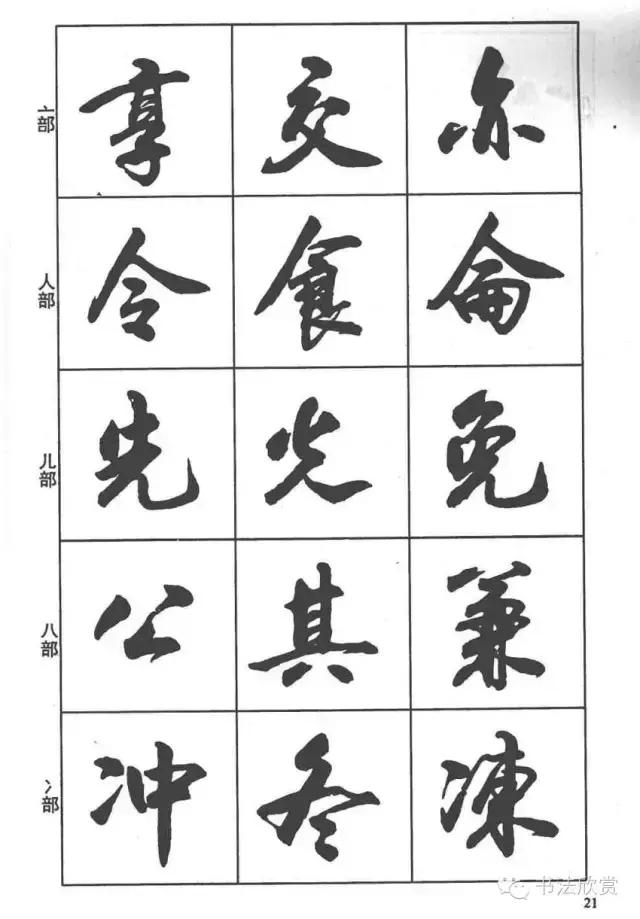 亠部 享 交 亦
人部 令 食 侖
儿部 先 光 免
八部 公 其 兼
冫部 冲 冬 凍
书法欣赏
21